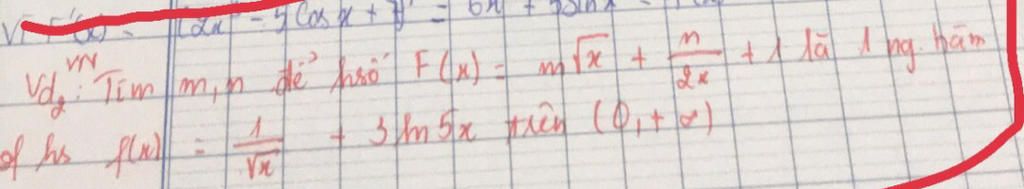 Vì F'(x) = (2x - 5cosx + 7)' = 6x + 5sinx
Vd₂: Tìm m, n để hsố F(x) = m√x + n/2x + 1 là 1 ng. hàm
of hs f(x) = 1/√x + 3 ln5x trên (0, +∞)